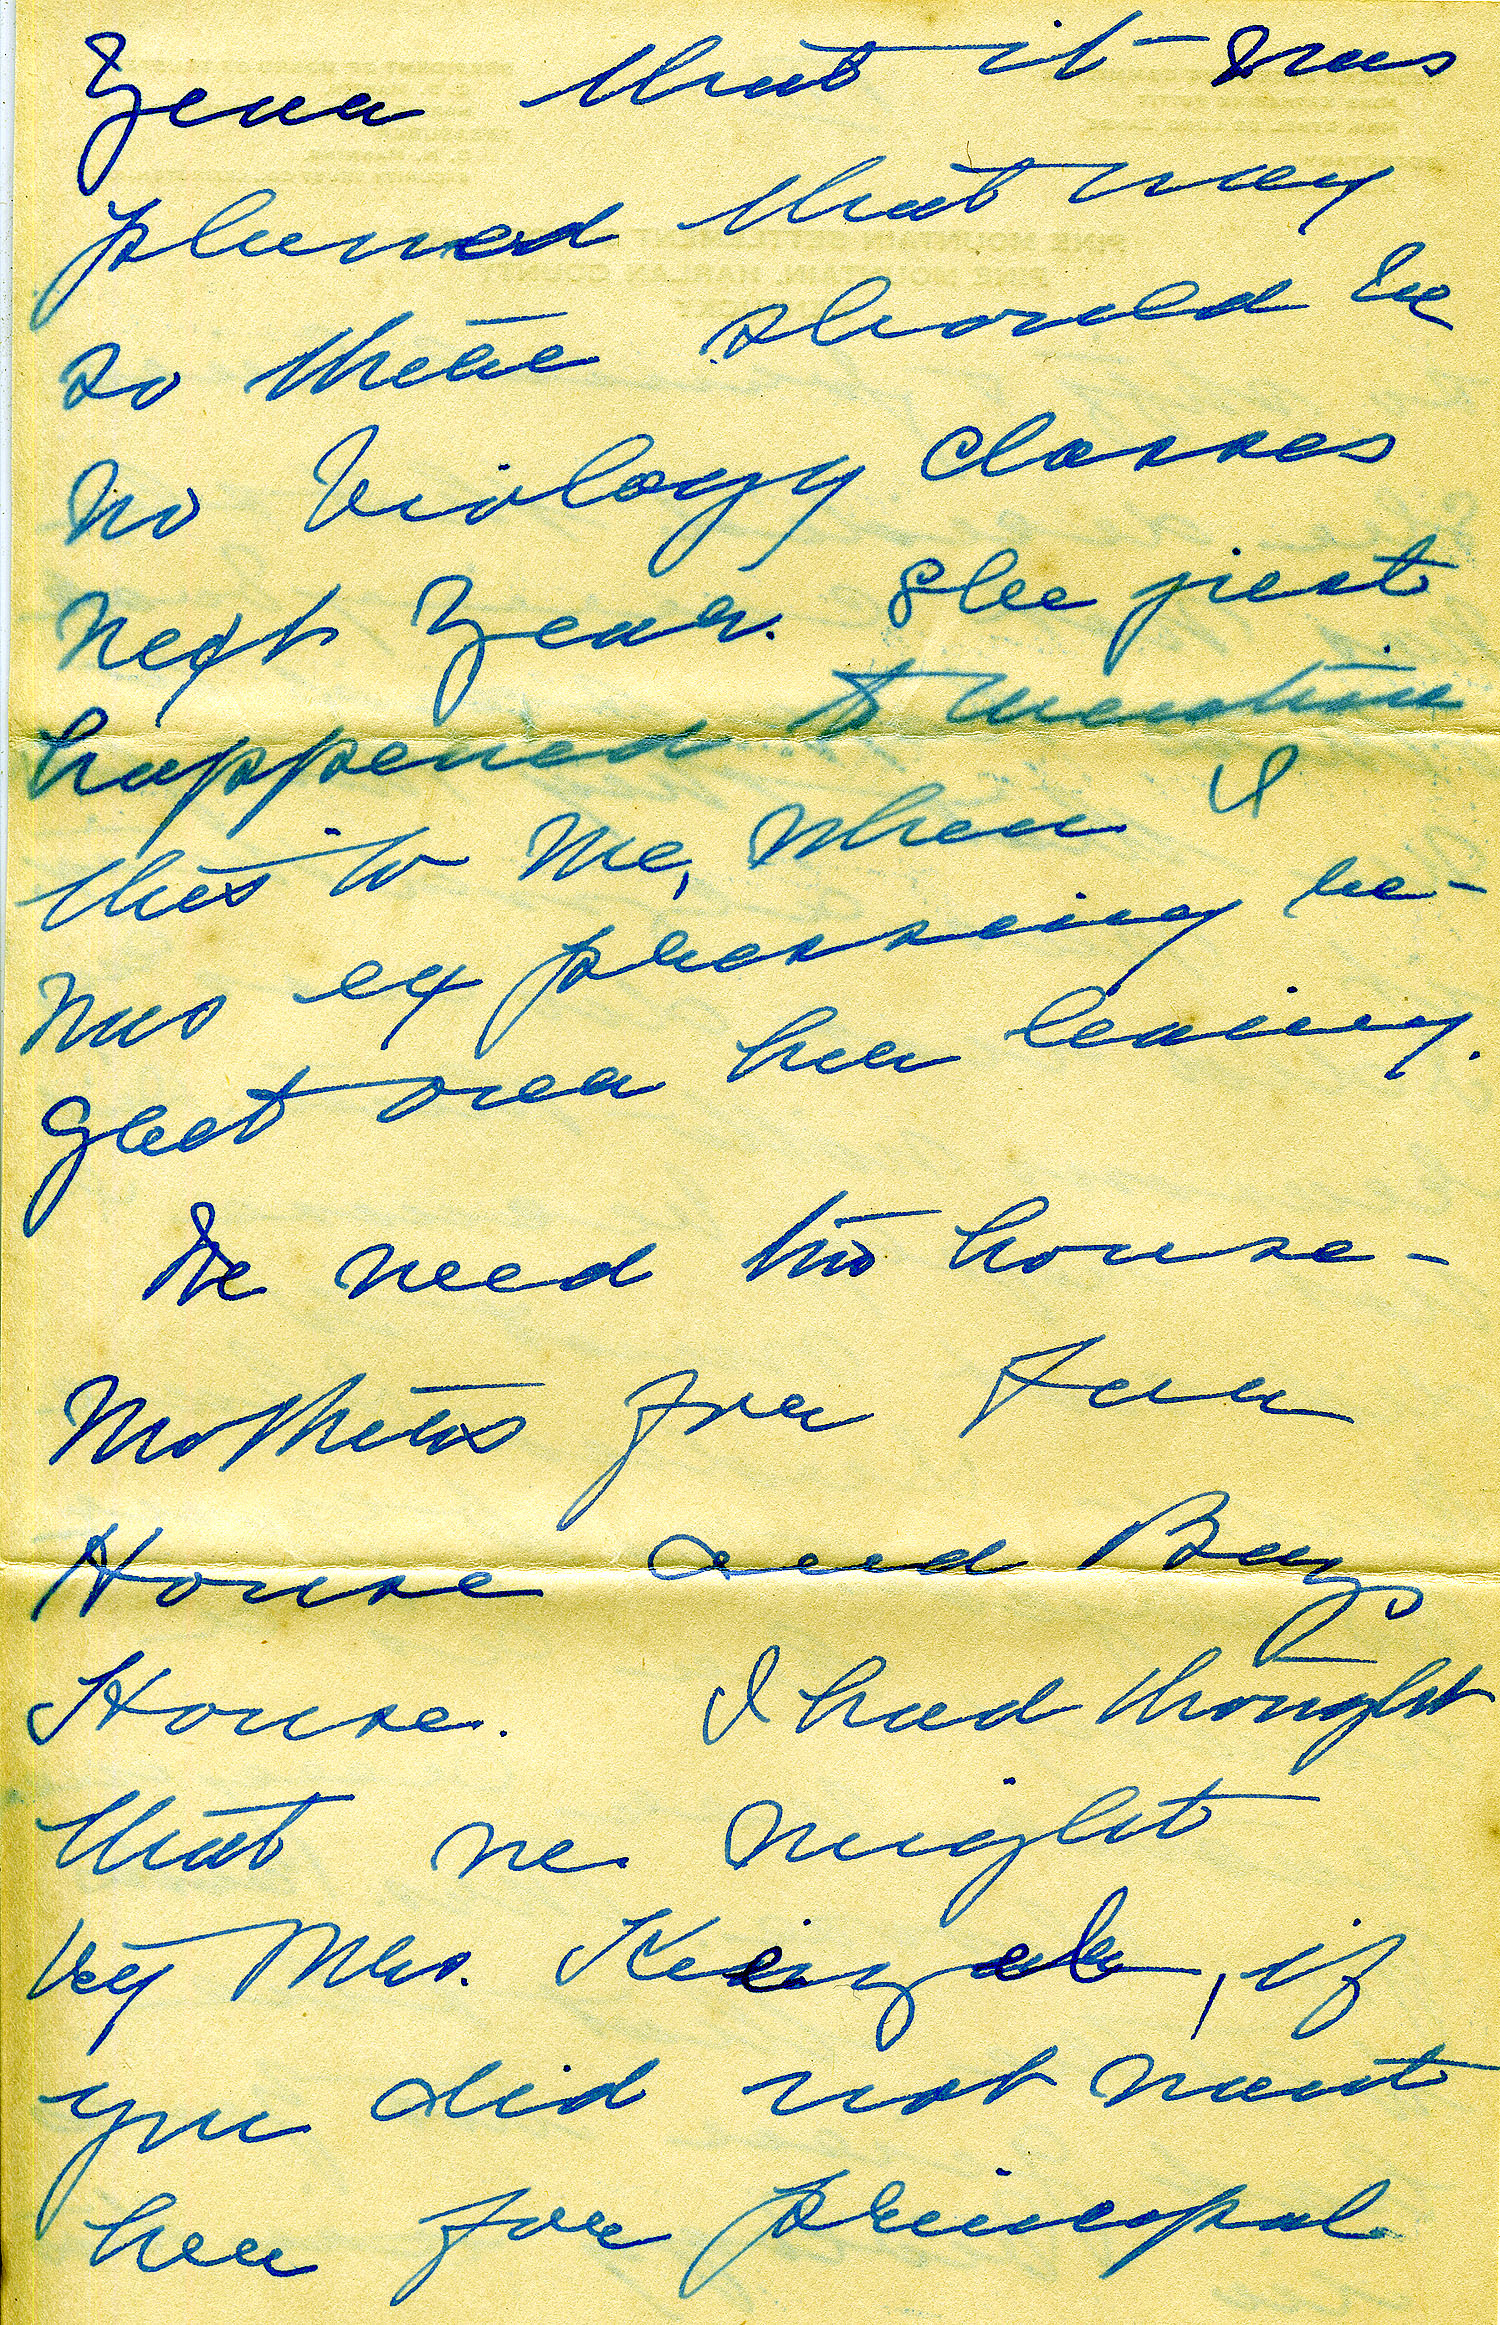 Year that it was
planed that way
so there should be
no biology classes
next Year. She just
happened to mention
this to me, when I
was ex pressing re-
gret over her leaving.
We need two house-
mothers for Far
House and Boys
House. I had thought
that we might
try Mrs.          , if
you did not want
her for principal